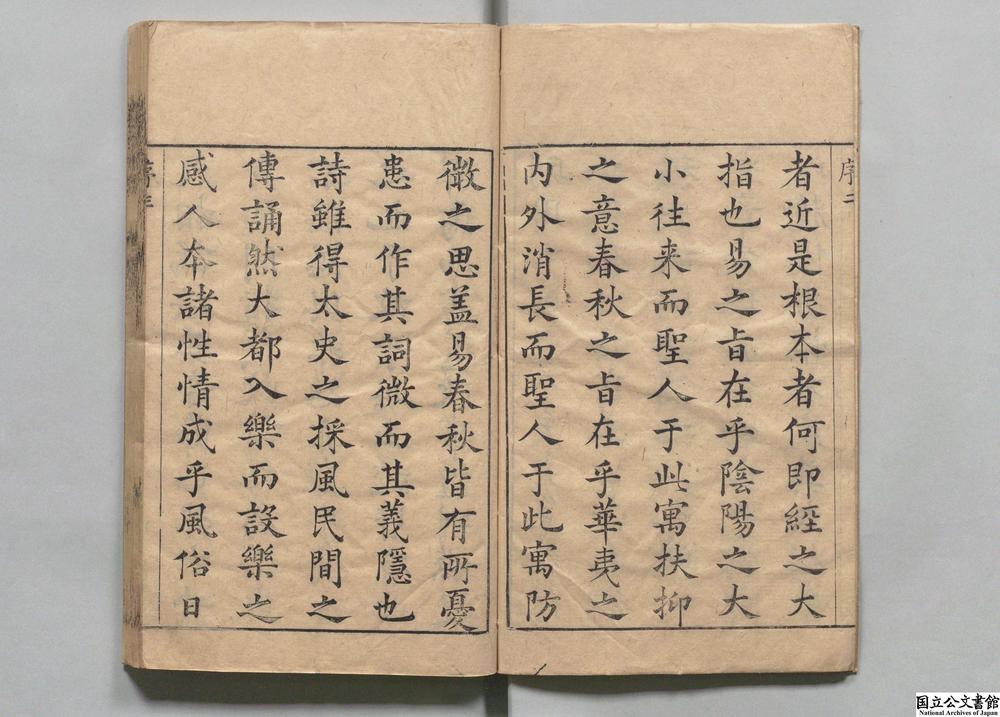 序二
者近是根本者何即經之大
指也易之旨在乎陰陽之大
小往来而聖人于此寓扶抑
之意春秋之旨在乎華夷之
内外消長而聖人于此寓防
微之思盖易春秋皆有所憂
患而作其詞微而其義隱也
詩雖得太史之採風民間之
傳誦然大都入樂而設樂之
感人本諸性情成乎風俗日
序三
国立公文書館
National Archives of Japan